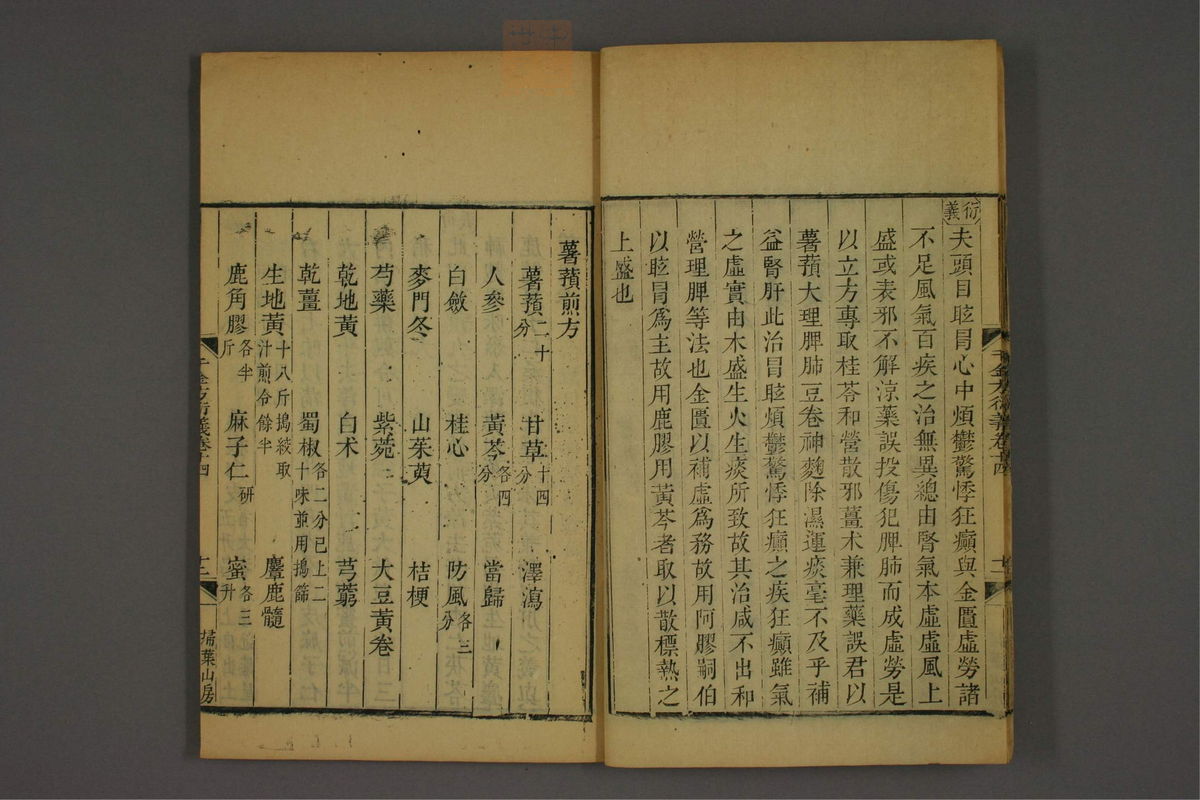 衍義
夫頭目眩冒心中煩鬱驚悸狂癲與金匱虛勞諸
不足風氣百疾之治無異總由腎氣本虛虛風上
盛或表邪不解涼藥誤投傷犯脾肺而成虛勞是
以立方專取桂苓和營散邪薑术兼理藥誤君以
薯蕷大理脾肺豆卷神麴除濕運痰毫不及乎補
益腎肝此治冒眩煩鬱驚悸狂癲之疾狂癲雖氣
之虛實由木盛生火生痰所致故其治咸不出和
營理脾等法也金匱以補虛爲務故用阿膠嗣伯
以眩冒爲主故用鹿膠用黃芩者取以散標熱之
上盛也
千金方衍義卷十四
薯蕷煎方
薯蕷二十分 甘草十四分 澤瀉
人參 黃芩各四分 當歸
白斂 桂心 防風各三分
麥門冬 山茱萸 桔梗
芍藥 紫菀 大豆黃卷
乾地黃 白术 芎藭
乾薑 蜀椒各二分已上二十味並用搗篩
生地黃十八斤搗絞取汁煎令餘半 麞鹿髓
鹿角膠各半斤 麻子仁研 蜜各三升
千金方衍義卷十四
掃葉山房